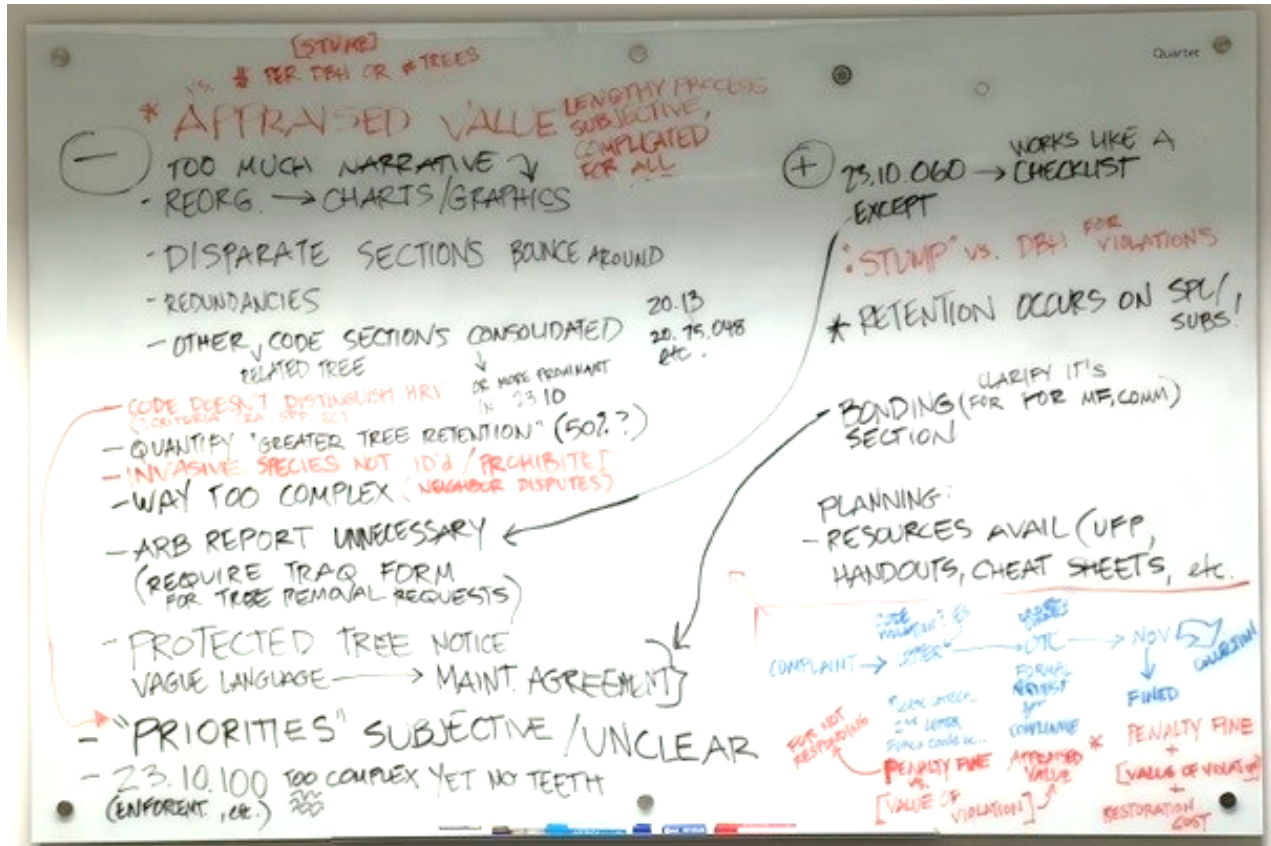 [STUMP]
VS. $ PER DBH OR # TREES
* APPRAISED VALUE
LENGTHY PROCESS
SUBJECTIVE,
COMPLICATED
FOR ALL
Quartet
−
TOO MUCH NARRATIVE
- REORG. → CHARTS/GRAPHICS
- DISPARATE SECTIONS BOUNCE AROUND
- REDUNDANCIES
- OTHER CODE SECTIONS CONSOLIDATED
RELATED TREE
20.13
20.75.048
etc.
OR MORE PROMINANT
IN 23.10
- CODE DOESN'T DISTINGUISH
- QUANTIFY "GREATER TREE RETENTION" (50%?)
- INVASIVE SPECIES NOT ID'd / PROHIBITED
- WAY TOO COMPLEX (NEIGHBOR DISPUTES)
- ARB REPORT UNNECESSARY
(REQUIRE TRAQ FORM
FOR TREE REMOVAL REQUESTS)
- PROTECTED TREE NOTICE
VAGUE LANGUAGE → MAINT. AGREEMENT}
- "PRIORITIES" SUBJECTIVE / UNCLEAR
- 23.10.100 TOO COMPLEX YET NO TEETH
(ENFORENT., etc.)
+
23.10.060 → WORKS LIKE A
CHECKLIST
EXCEPT
: "STUMP" VS. DBH FOR VIOLATIONS
* RETENTION OCCURS ON SPL/,
SUBS!
CLARIFY IT'S
BONDING (FOR FOR MF, COMM)
SECTION
PLANNING:
- RESOURCES AVAIL (UFP,
HANDOUTS, CHEAT SHEETS, etc.
CODE
COMPLAINT → LETTER → OTC → NOV
COLLECTION
2nd LETTER
FORMAL
REQUEST
for
COMPLIANCE
FINED
FOR NOT
RESPONDING
PENALTY FINE
VS.
[VALUE OF
VIOLATION]
APPRAISED
VALUE
*
PENALTY FINE
+
[VALUE OF VIOLATION]
+
RESTORATION
COST